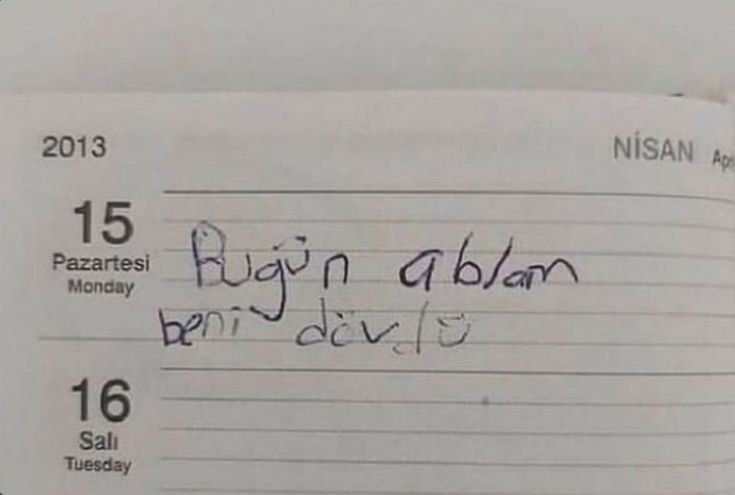 2013
NİSAN Apr
15
Pazartesi
Monday
Bugün ablam
beni dövdü
16
Salı
Tuesday